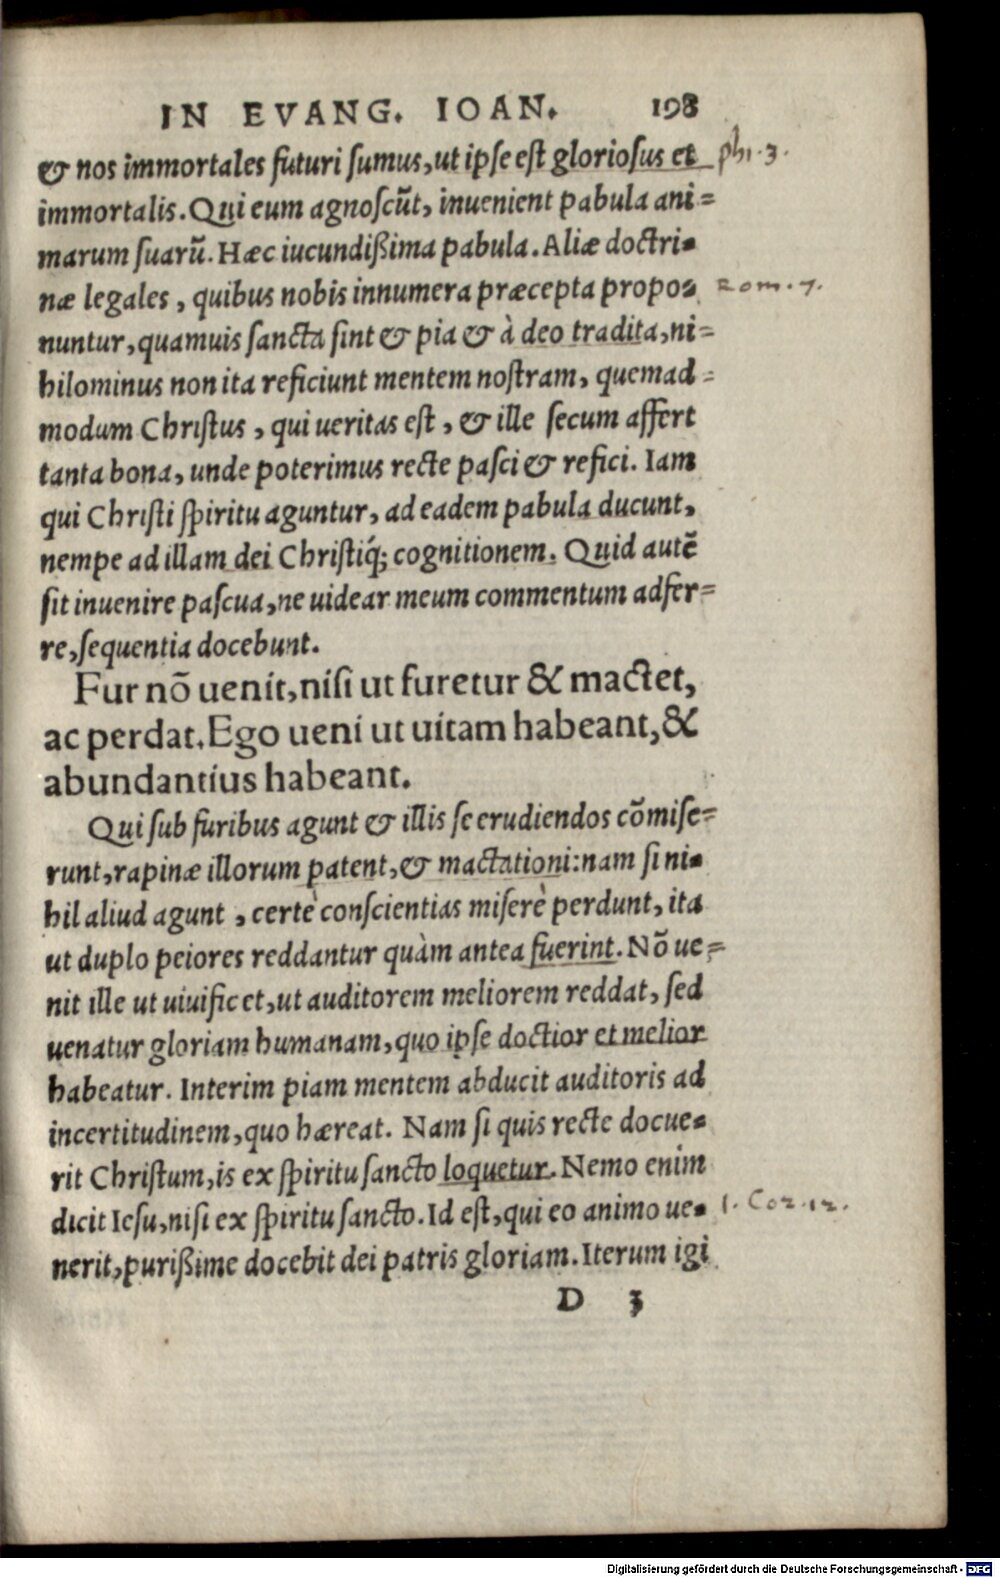 IN EVANG. IOAN. 198
& nos immortales futuri sumus, ut ipse est gloriosus et phi. 3.
immortalis. Qui eum agnoscūt, inuenient pabula ani=
marum suarū. Hæc iucundißima pabula. Aliæ doctri=
næ legales, quibus nobis innumera præcepta propo= Rom. 7.
nuntur, quamuis sancta sint & pia & à deo tradita, ni=
hilominus non ita reficiunt mentem nostram, quemad=
modum Christus, qui ueritas est, & ille secum affert
tanta bona, unde poterimus recte pasci & refici. Iam
qui Christi spiritu aguntur, ad eadem pabula ducunt,
nempe ad illam dei Christiq́; cognitionem. Quid autē
sit inuenire pascua, ne uidear meum commentum adfer=
re, sequentia docebunt.
Fur nō uenit, nisi ut furetur & mactet,
ac perdat. Ego ueni ut uitam habeant, &
abundantius habeant.
Qui sub furibus agunt & illis se erudiendos cōmise=
runt, rapinæ illorum patent, & mactationi: nam si ni=
hil aliud agunt, certè conscientias miserè perdunt, ita
ut duplo peiores reddantur quàm antea fuerint. Nō ue=
nit ille ut uiuificet, ut auditorem meliorem reddat, sed
uenatur gloriam humanam, quo ipse doctior et melior
habeatur. Interim piam mentem abducit auditoris ad
incertitudinem, quo hæreat. Nam si quis recte docue=
rit Christum, is ex spiritu sancto loquetur. Nemo enim
dicit Iesu, nisi ex spiritu sancto. Id est, qui eo animo ue= 1. Cor. 12.
nerit, purißime docebit dei patris gloriam. Iterum igi
D 3
Digitalisierung gefördert durch die Deutsche Forschungsgemeinschaft - DFG